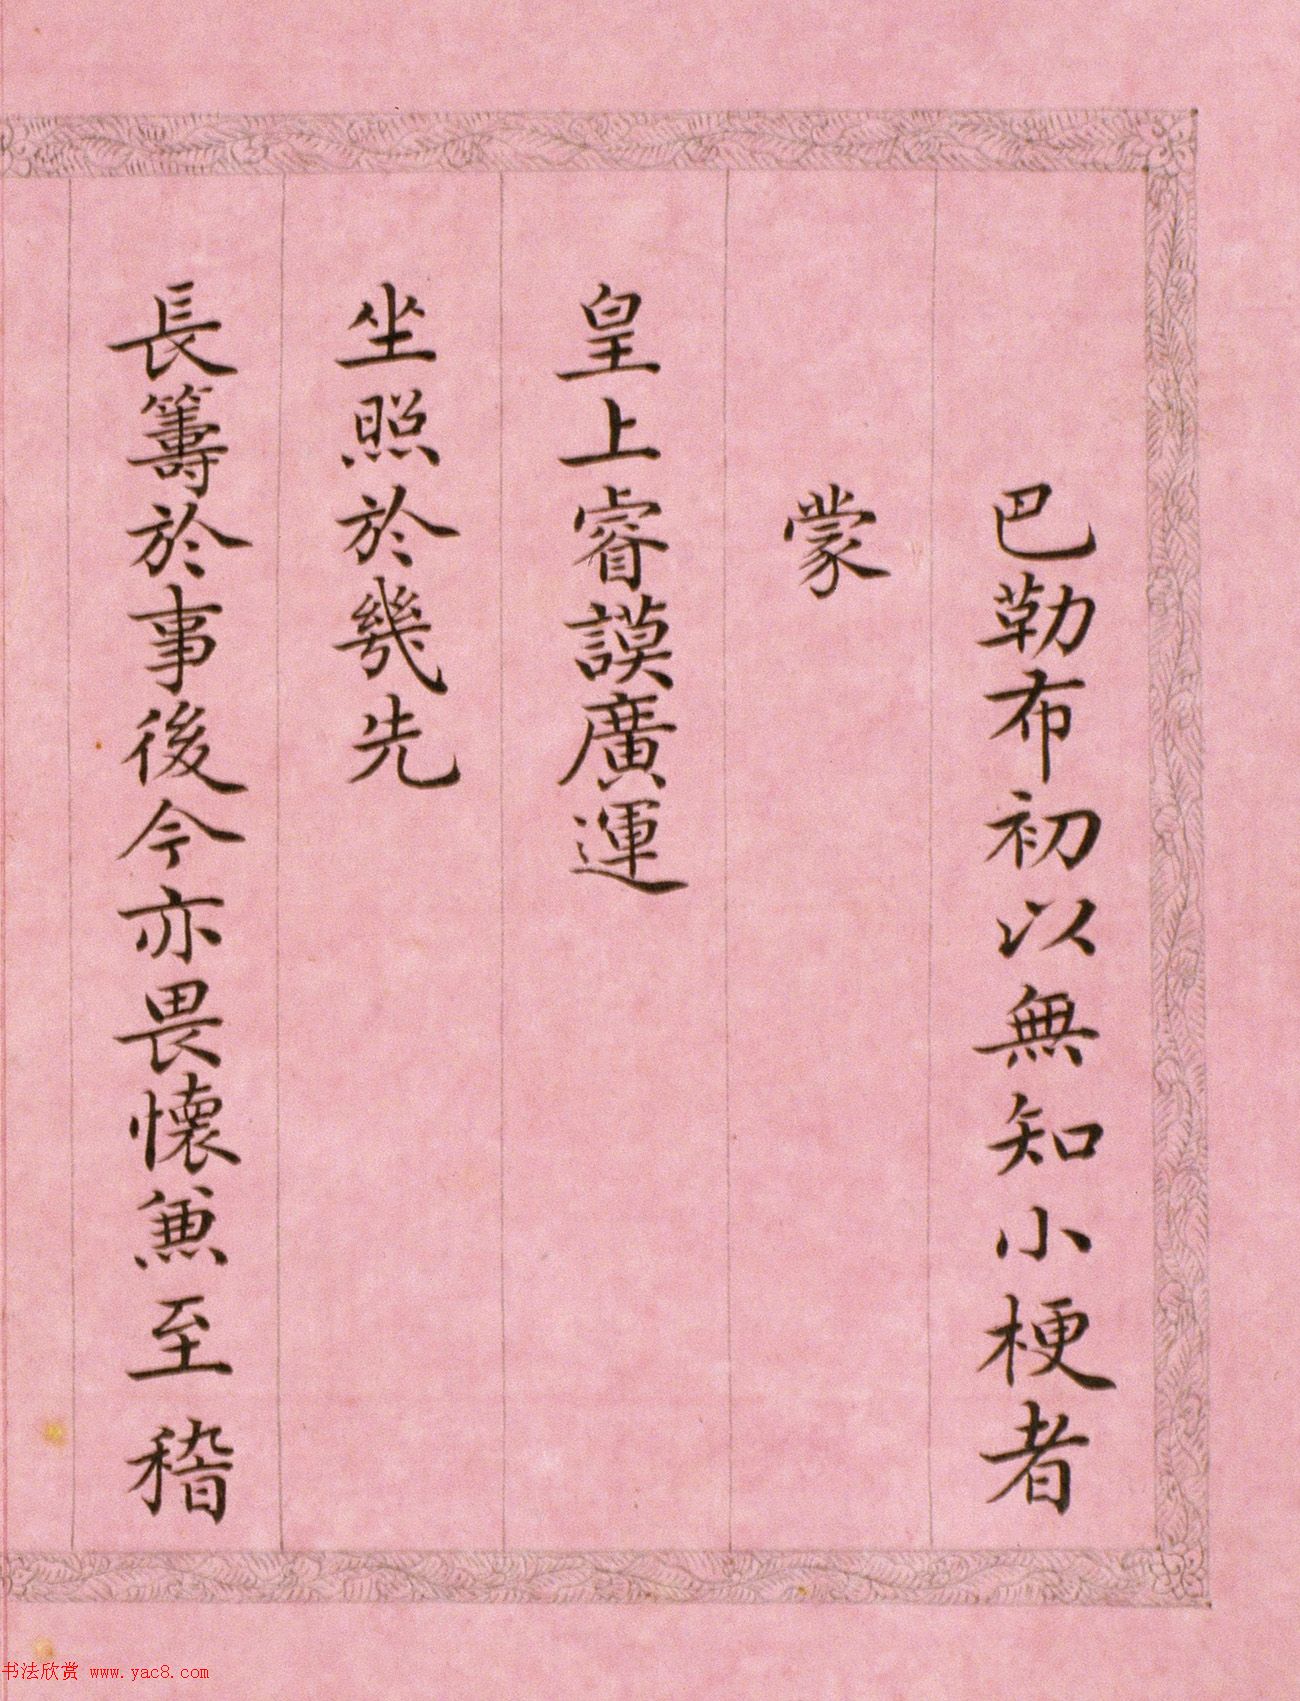 巴勒布初以無知小梗者
蒙
皇上睿謨廣運
坐照於幾先
長籌於事後今亦畏懷兼至稽
书法欣赏 www.yac8.com